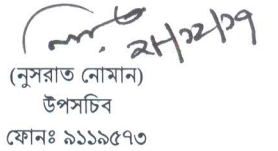 ২৮/১২/১৭
(নুসরাত নোমান)
উপসচিব
ফোনঃ ৯১১৯৫৭৩